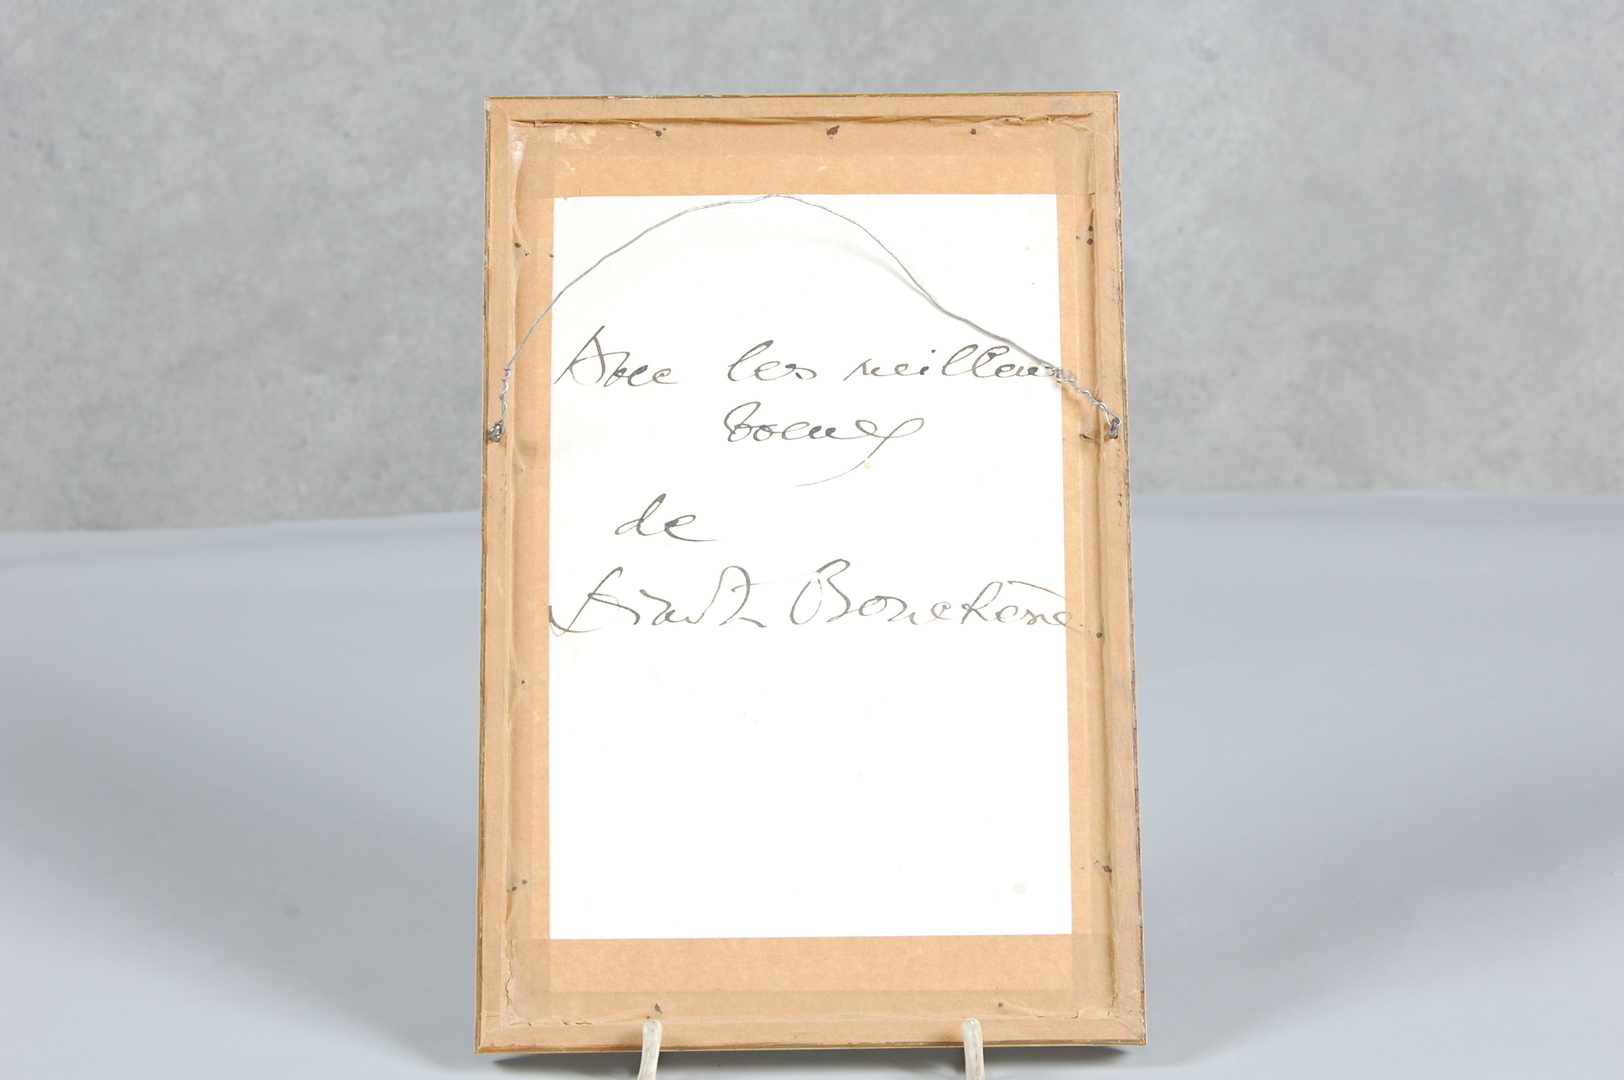 Avec les meilleurs
voeux
de
Dimitri Bouchène